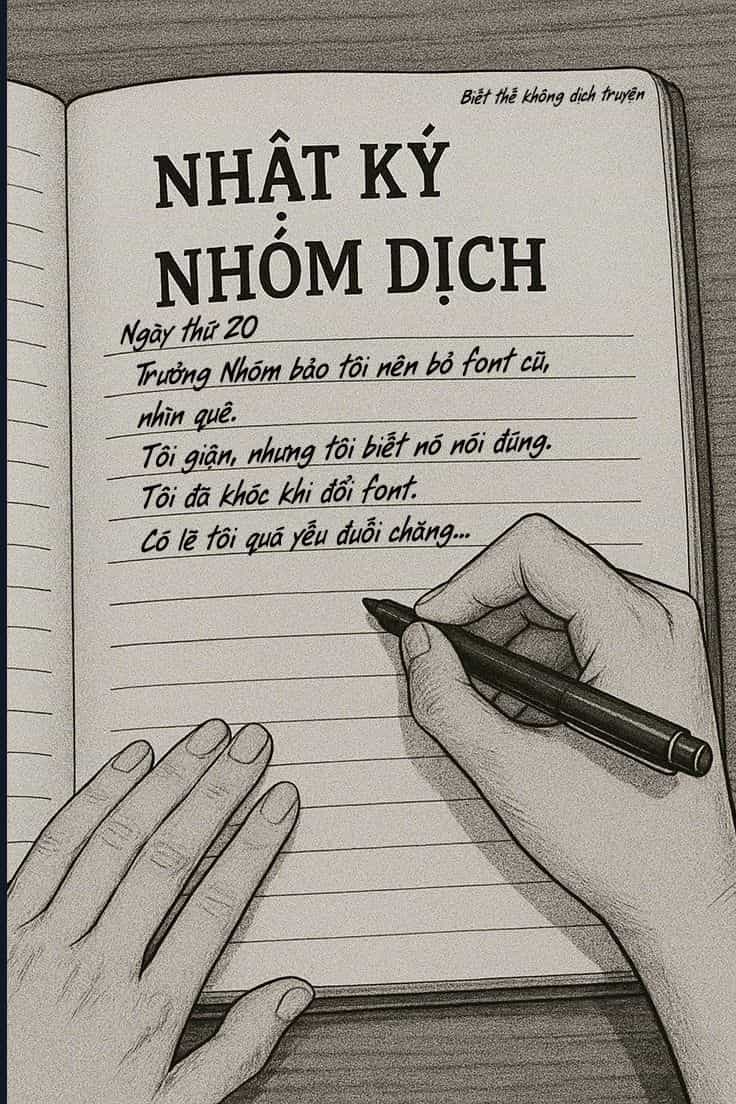 Biết thế không dịch truyện
NHẬT KÝ
NHÓM DỊCH
Ngày thứ 20
Trưởng Nhóm bảo tôi nên bỏ font cũ,
nhìn quê.
Tôi giận, nhưng tôi biết nó nói đúng.
Tôi đã khóc khi đổi font.
Có lẽ tôi quá yếu đuối chăng...